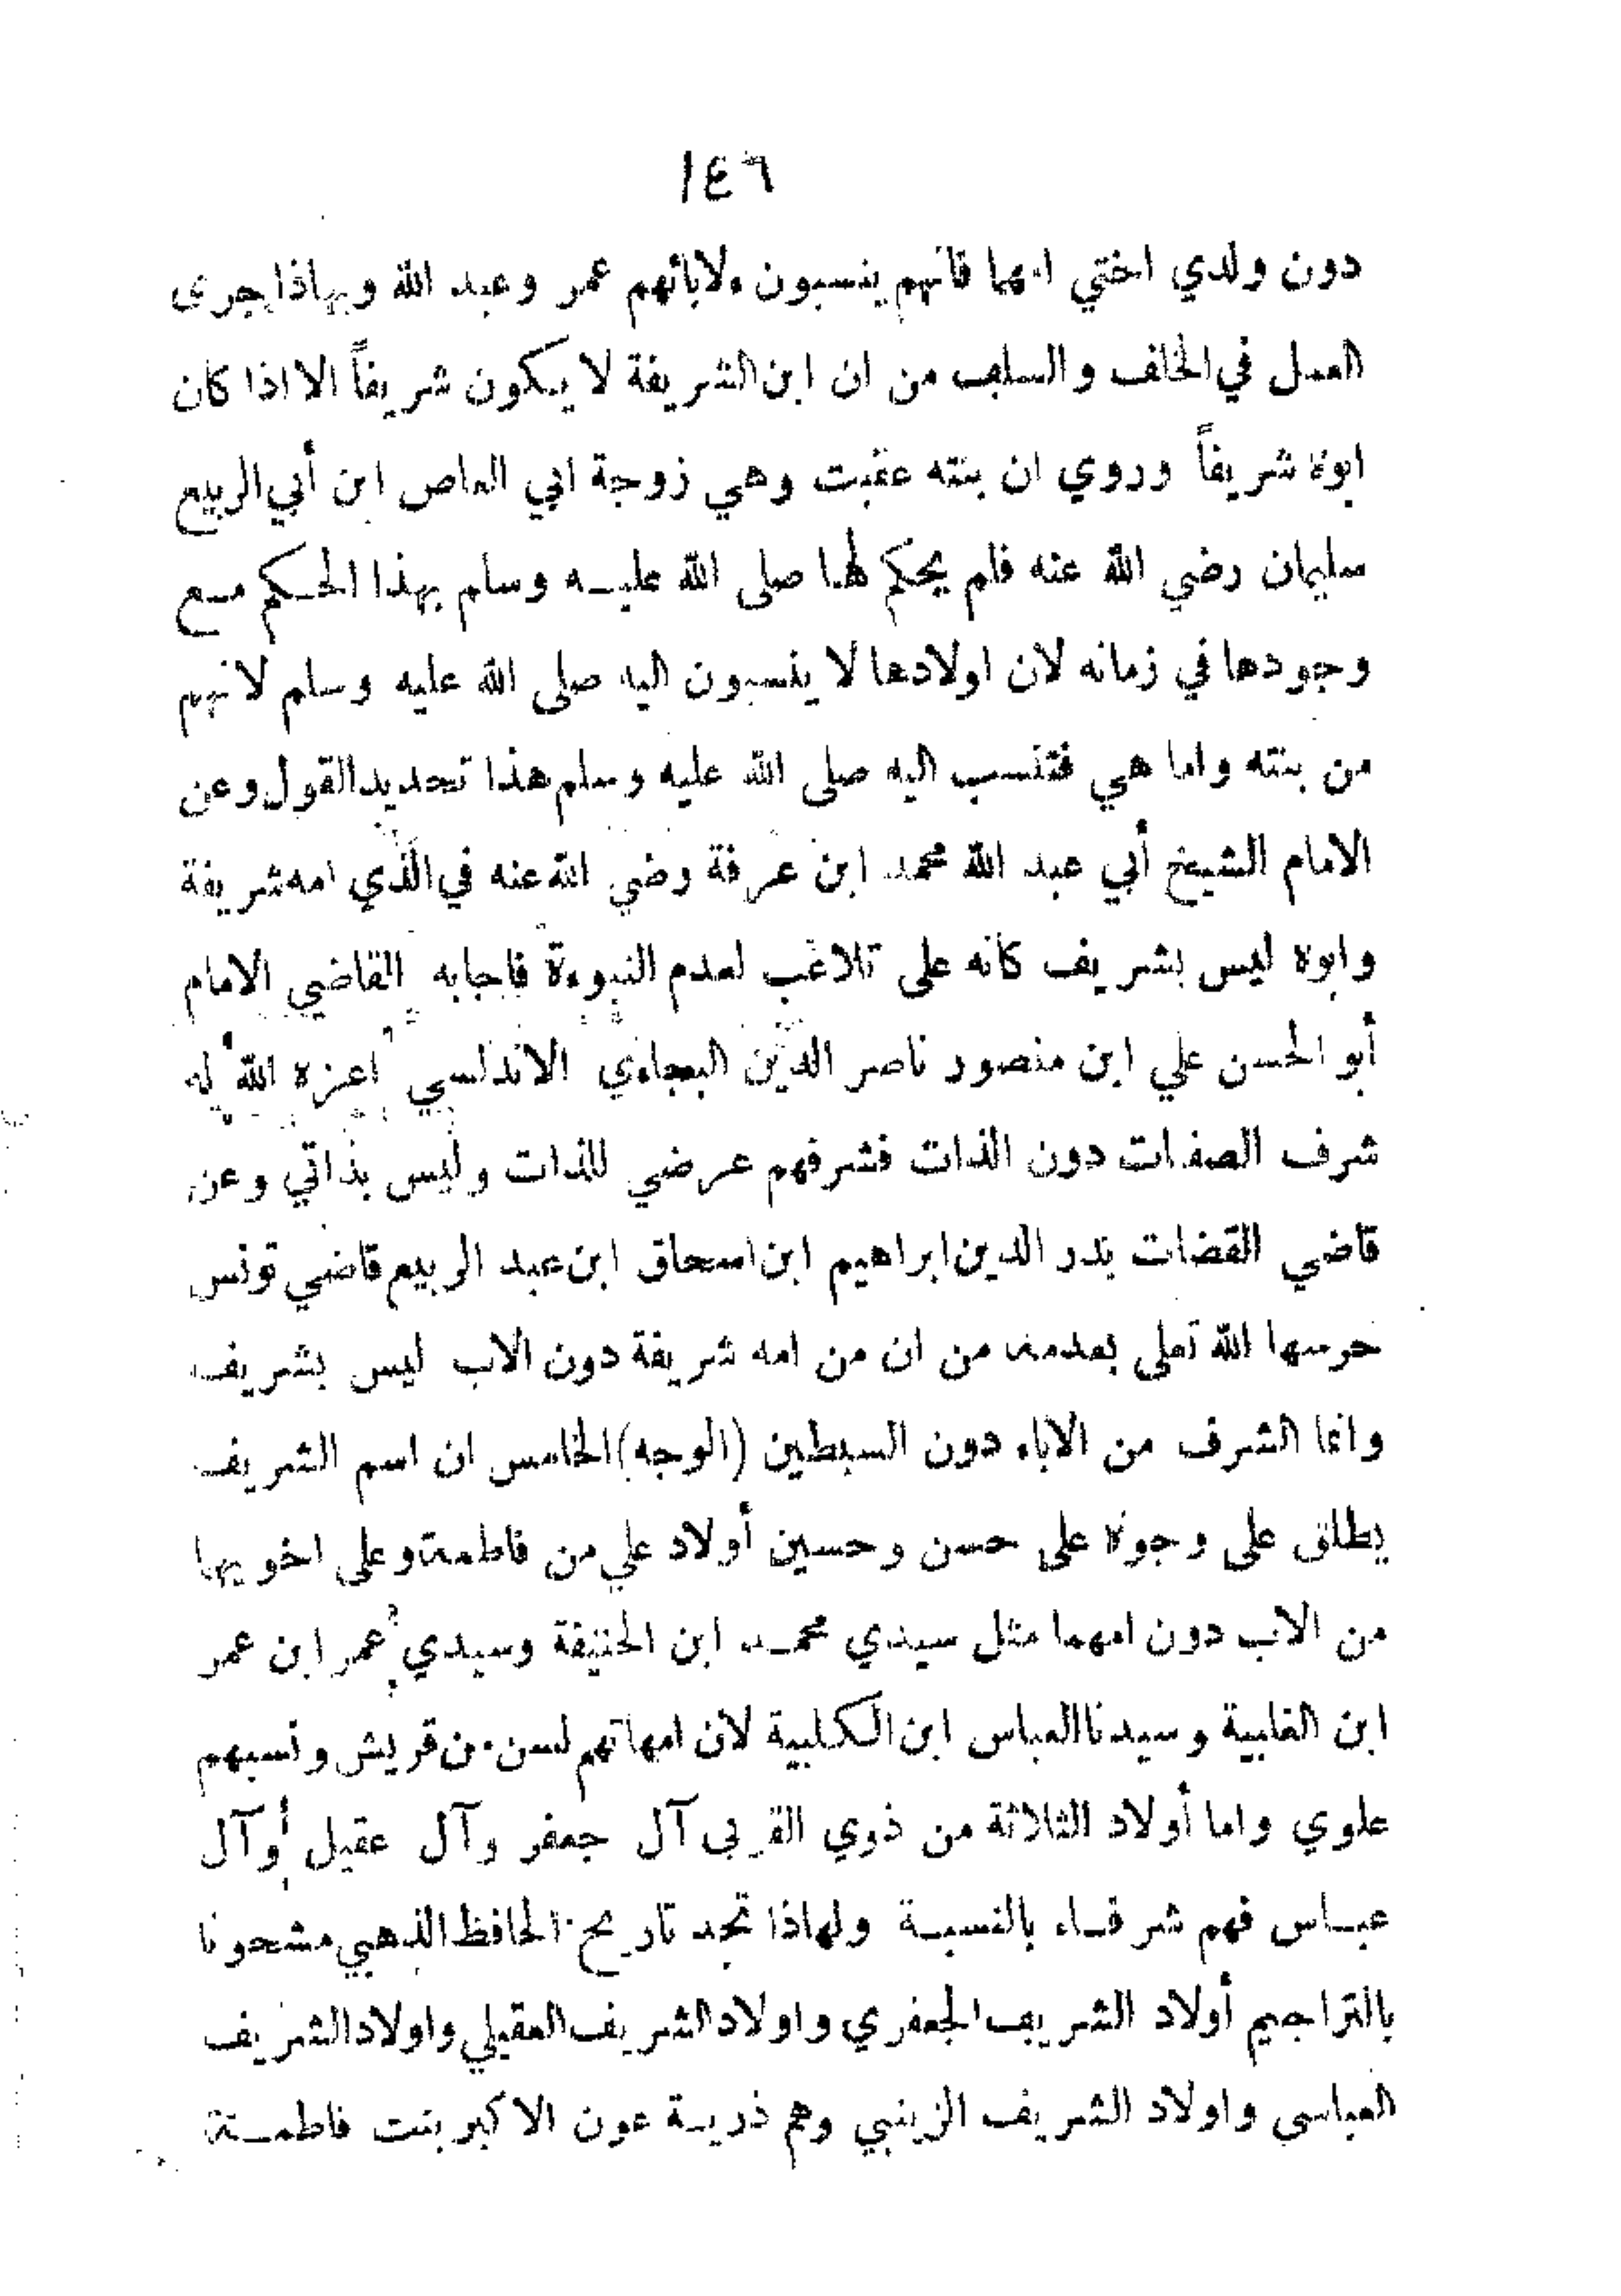 ١٤٦
دون ولدي اختي امهما فانهم ينسبون ولابائهم عمر وعبد الله وبهاذا جرى
العمل في الخلف والسلف من ان ابن الشريفة لا يكون شريفاً الا اذا كان
ابوه شريفاً وروي ان بنته عقبت وهي زوجة ابي العاص ابن أبي الربيع
سليمان رضي الله عنه فلم يحكم لها صلى الله عليه وسلم بهذا الحكم مع
وجودها في زمانه لان اولادها لا ينسبون اليه صلى الله عليه وسلم لانهم
من بنته واما هي فتنسب اليه صلى الله عليه وسلم هذا تحديد القول وعن
الامام الشيخ أبي عبد الله محمد ابن عرفة رضي الله عنه في الذي امه شريفة
وابوه ليس بشريف كانه على تلاعب لعدم النبوءة فاجابه القاضي الامام
أبو الحسن علي ابن منصور ناصر الدين البجاءي الاندلسي اعزه الله له
شرف الصفات دون الذات فشرفهم عرضي للذات وليس بذاتي وعن
قاضي القضات بدر الدين ابراهيم ابن اسحاق ابن عبد الربيع قاضي تونس
حرسها الله تعلى بعدمه من ان من امه شريفة دون الاب ليس بشريف
وانما الشرف من الاباء دون السبطين (الوجه) الخامس ان اسم الشريف
يطلق على وجوه على حسن وحسين أولاد علي من فاطمة وعلى اخويها
من الاب دون امهما مثل سيدي محمد ابن الحنيفة وسيدي عمر ابن عمر
ابن الغلبية وسيدنا العباس ابن الكلبية لان امهاتهم لسن من قريش ونسبهم
علوي واما أولاد الثلاثة من ذوي القربى آل جعفر وآل عقيل أو آل
عباس فهم شرفاء بالنسبة ولهاذا تجد تاريخ الحافظ الذهبي مشحونا
بالتراجيم أولاد الشريف الجعفري واولاد الشريف العقيلي واولاد الشريف
العباسي واولاد الشريف الزينبي وهم ذرية عون الاكبر بنت فاطمة